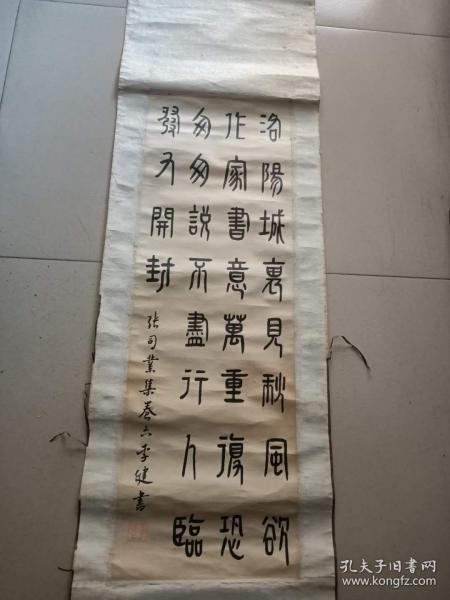 洛陽城裏見秋風欲
作家書意萬重復恐
匆匆說不盡行人臨
發又開封
張司業集卷六李健書
孔夫子旧书网
www.kongfz.com